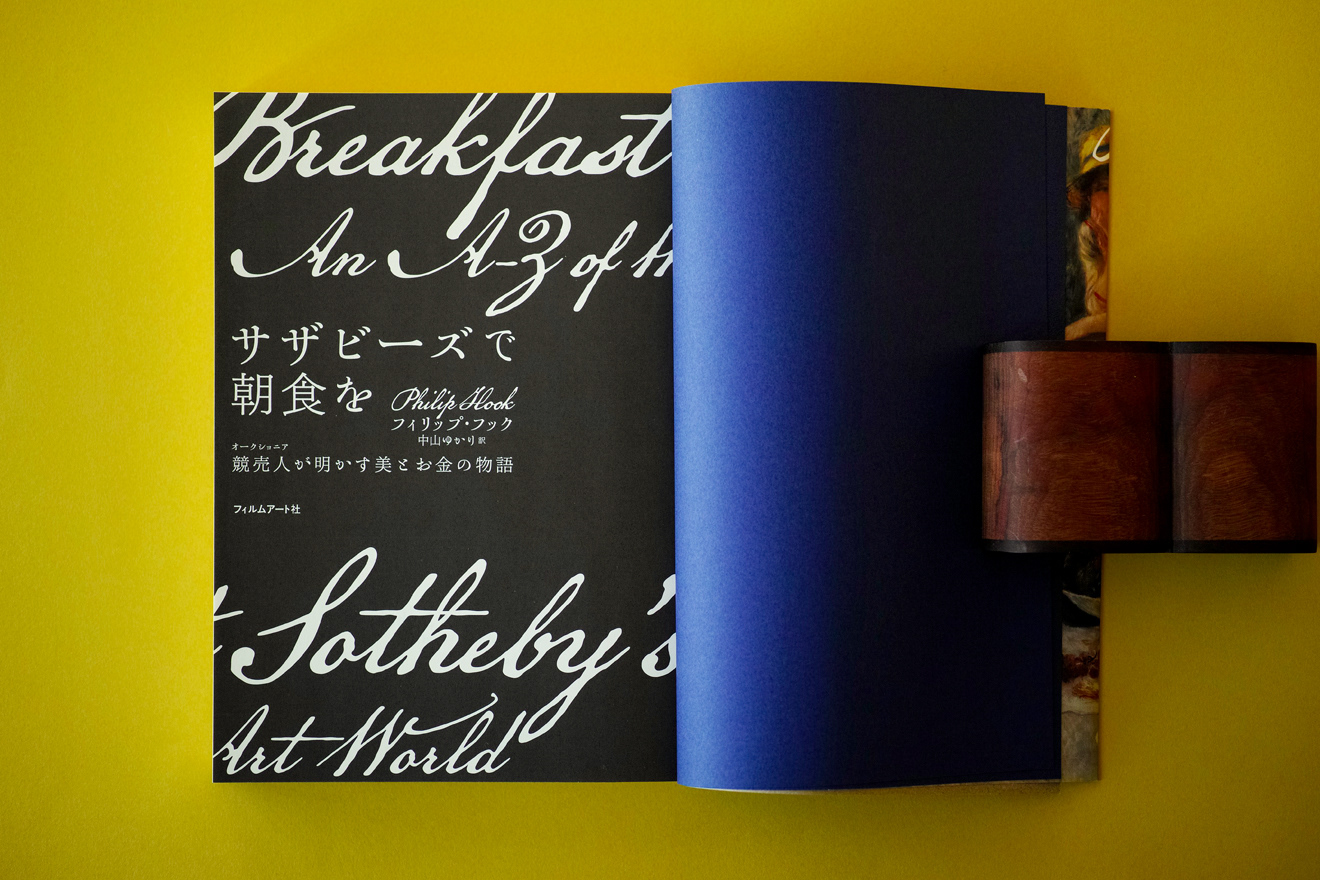 Breakfast
An A-Z of
サザビーズで
朝食を
Philip Hook
フィリップ・フック
中山ゆかり 訳
オークショニア
競売人が明かす美とお金の物語
フィルムアート社
t Sotheby's
Art World